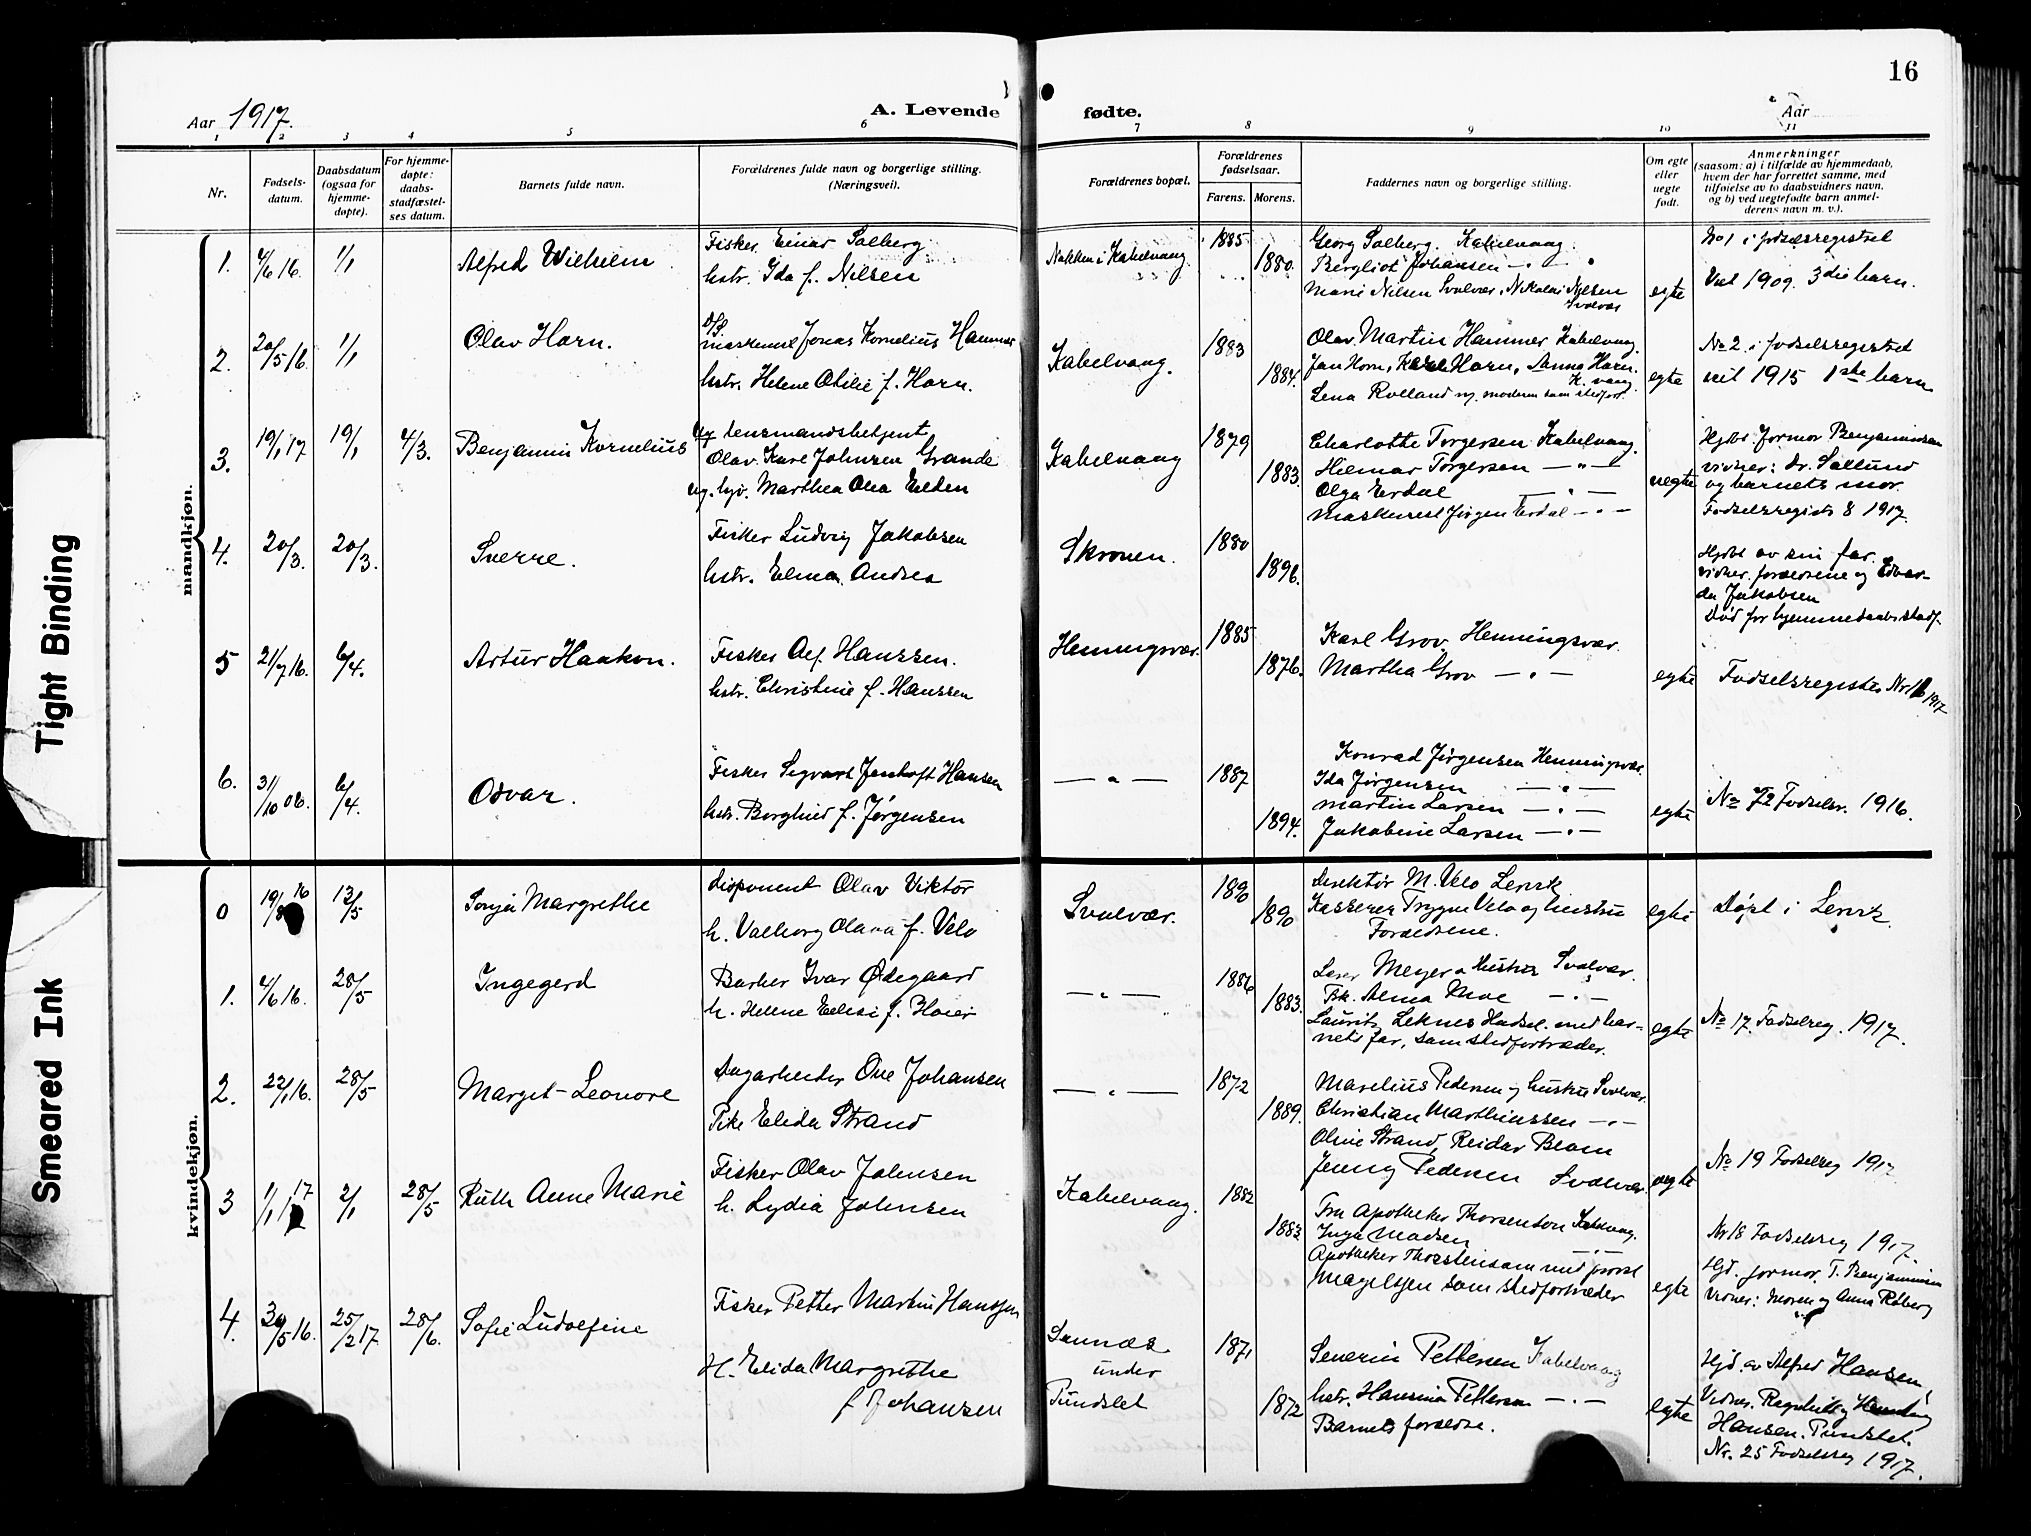 16
Aar 1917.
A. Levende fødte.
Aar
1 2 3 4 5 6 7 8 9 10 11
Nr.
Fødsels-
datum.
Daabsdatum
(ogsaa for
hjemme-
døpte).
For hjemme-
døpte:
daabs-
stadfæstel-
ses datum.
Barnets fulde navn.
Forældrenes fulde navn og borgerlige stilling.
(Næringsvei).
Forældrenes bopæl.
Forældrenes
fødselsaar.
Farens. Morens.
Faddernes navn og borgerlige stilling.
Om egte
eller
uegte
født.
Anmerkninger
(saasom: a) i tilfælde av hjemmedaab,
hvem der har forrettet samme, med
tilføielse av to daabsvidners navn,
og b) ved uegtefødte barn anmel-
derens navn m. v.).
mandkjøn.
1. 4/6 16. 1/1 Alfred Wilhelm
Fisker Einar Solberg
hstr. Ida f. Nilsen
Nakken i Kabelvaag
1885
1880.
Georg Solberg. Kabelvaag.
Bergliot Johansen — " —
Marie Nilsen Svolvær, Nikolai Nilsen
Svolvær
egte
No 1 i fødselsregistret
Viet 1909. 3die barn.
2. 20/5 16. 1/1 Olav Horn.
D/S.
maskinist Jonas Kornelius Hammer
hstr. Helene Otilie f. Horn.
Kabelvaag.
1883
1884.
Olav Martin Hammer Kabelvaag.
Jan Horn, Karl Horn, Sanna Horn.
K.vaag
Lena Rolland v. moderen som stedfort.
egte
No 2 i fødselsregistret
viet 1915 1ste barn
3. 19/1 17 19/1 4/3. Benjamin Kornelius
Ug lensmandsbetjent
Olav Karl Johnsen Grande
ug. Marthea Olea Elden
Kabelvaag
1879
1883.
Charlotte Torgersen Kabelvaag.
Hilmar Torgersen — " —
Olga Erdal — " —
Maskinist Jørgen Erdal — " —
uegte
Hjdbt. Jormor Benjaminsen
vidner: dr. Sællund
og barnets mor.
Fødselsregistr 8 1917.
4. 20/3. 20/3. Sverre.
Fisker Ludvig Jakobsen
hstr. Elma Andrea
Skroven.
1880
1896.
Hjdbt av sin far.
vidner. forældrene og Edvar-
da Jakobsen
Død før hjemmedaabs stadf.
5 21/7 16. 6/4. Artur Haakon.
Fisker Alf. Hanssen.
hstr. Christine f. Hanssen
Henningsvær.
1885
1876.
Karl Grov Henningsvær.
Martha Grov — " —
egte
Fødselsregister Nr. 16 1917
6. 31/10 06. 6/4. Odvar.
Fisker Sigvart Jentoft Hansen
hstr. Borghild f. Jørgensen
— " —
1887
1894.
Konrad Jørgensen Henningsvær.
Ida Jørgensen — " —
Martin Larsen — " —
Jakobine Larsen — " —
egte
No 72 Fødselsr. 1916.
kvindekjøn.
0 19/8 16 13/5 Sonja Margrethe
disponent Olav Viktor
h. Valborg Olava f. Velo
Svolvær.
1890
1890
Direktør M. Velo Lervik
Kasserer Trygve Velo og hustru
Forældrene.
egte
Døpt i Lervik.
1. 4/6 16. 28/5 Ingegerd
Barber Ivar Ødegaard
h. Helene Elise f. Hoier
— " —
1886
1883.
Lærer Meyer o Hustru Svolvær.
Frk. Alma Moe — " —
Laurits Leknes Hadsel. med bar-
nets far, som stedfortræder.
egte
No 17. Fødselreg. 1917.
2. 22/1 16. 28/5 Margit-Leonore
Dagarbeider Ove Johansen
Pike Elida Strand
— " —
1872
1889.
Marelius Pedersen og hustru Svolvær.
Christian Marthinssen — " —
Oline Strand, Reidar Blom
Jenny Pedersen Svolvær.
uegte
No 19 Fødselreg 1917
3 1/1 17 2/1 28/5 Ruth Anne Marie
Fisker Olav Johnsen
h. Lydia Johnsen
Kabelvaag.
1882
1883
Fru Apotheker Thorsenson Kabelvaag.
Inga Madsen — " —
Apotheker Thorstensson med provst
Magelssen som stedfortræder
egte
Nr 18 Fødselsreg 1917.
Hjd. Jormor T. Benjaminsen
Vidner: Moren og Anna Roberg
4. 30/5 16. 25/2 17 28/6. Sofie Ludolfine
Fisker Petter Martin Hanssen
H. Elida Margrethe
f Johansen
Sannes
under
Pundslet
1871
1872
Severin Pettersen Kabelvaag
hstr. Hansine Pettersen — " —
Barnets forældre.
egte
Hjd. av Alfred Hansen,
Vidner. Regnhild og Henning
Hansen. Pundslet.
Nr. 25 Fødselsreg 1917.
Tight Binding
Smeared Ink